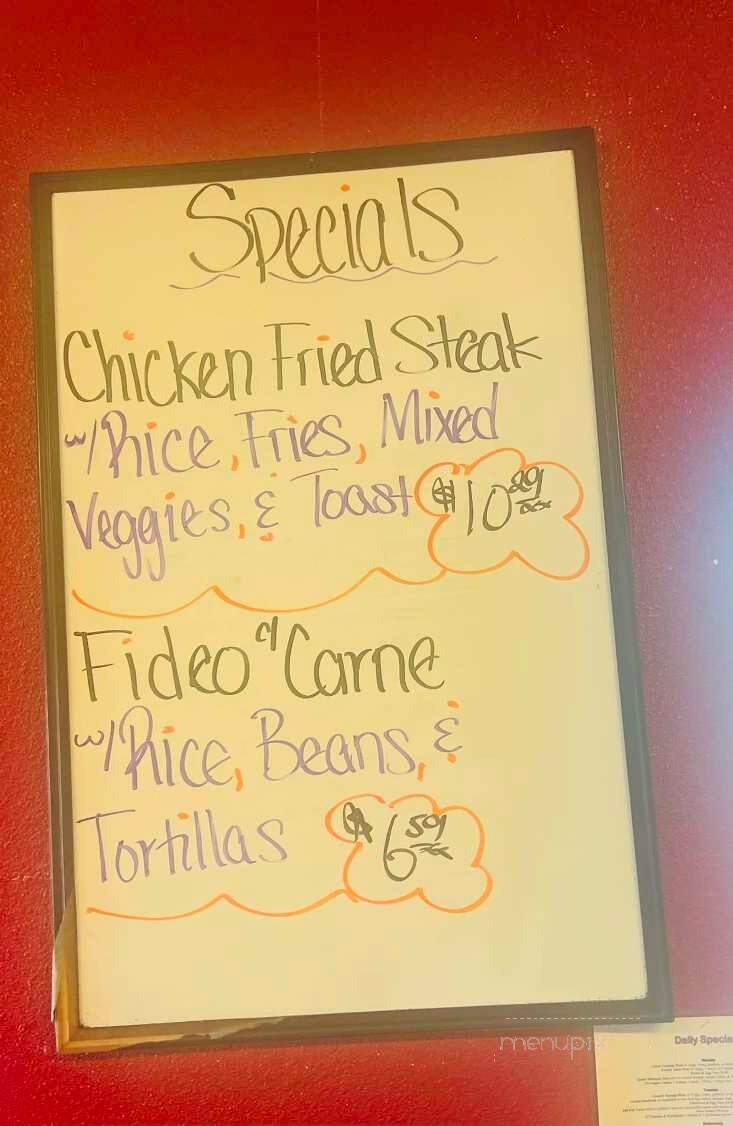 Specials
Chicken Fried Steak
w/Rice, Fries, Mixed
Veggies, & Toast $10.89
Fideo c/ Carne
w/Rice, Beans, &
Tortillas $6.59
menupix
Daily Specia